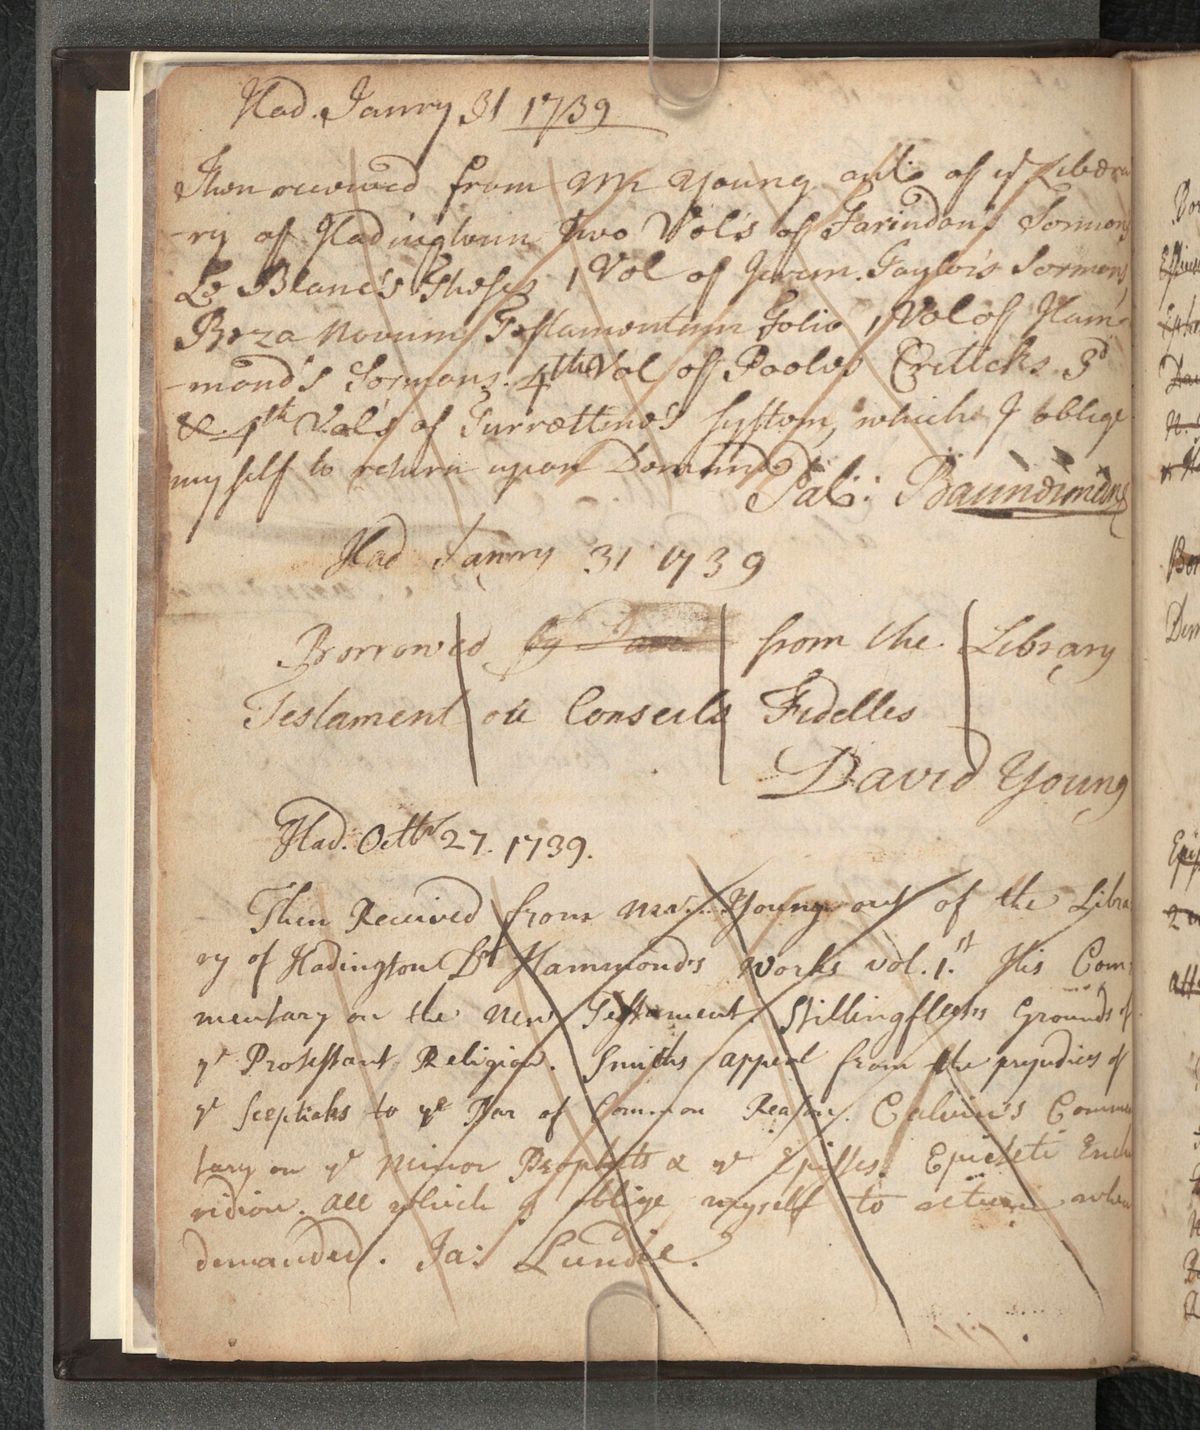 Had. Janry 31 1739
Then received from Mr Young out of ye Libra
-ry of Hadingtoun two Vol's of Farindon's Sermons
Le Blanc's Theses 1 Vol of Jerem. Taylor's Sermons,
Beza Novum Testamentum Folio 1 Vol of Ham-
-mond's Sermons. 4th Vol of Pooles Criticks 3d
& 4th Vol's of Turrettine's System, which I oblige
myself to return upon Demand
Pat:
Had Janry 31 1739
Borrowed by from the Library
Testament ou Conseils Fidelles
David Young
Had. Octbr 27. 1739.
Then Received from Mr Young out of the Libra
ry of Hadington Dr Hammond's Works vol. 1.st His Com:
mentary on the New Testament. Stillingfleets Grounds of
ye Protestant Religion. Smiths appeal from the prejudices of
ye Scepticks to ye Bar of Common Reason. Calvin's Commen
tary on ye Minor Prophets & ye Epistles. Epicteti Enchi
ridion. All which I oblige myself to return when
demanded. Ja: Lundie.